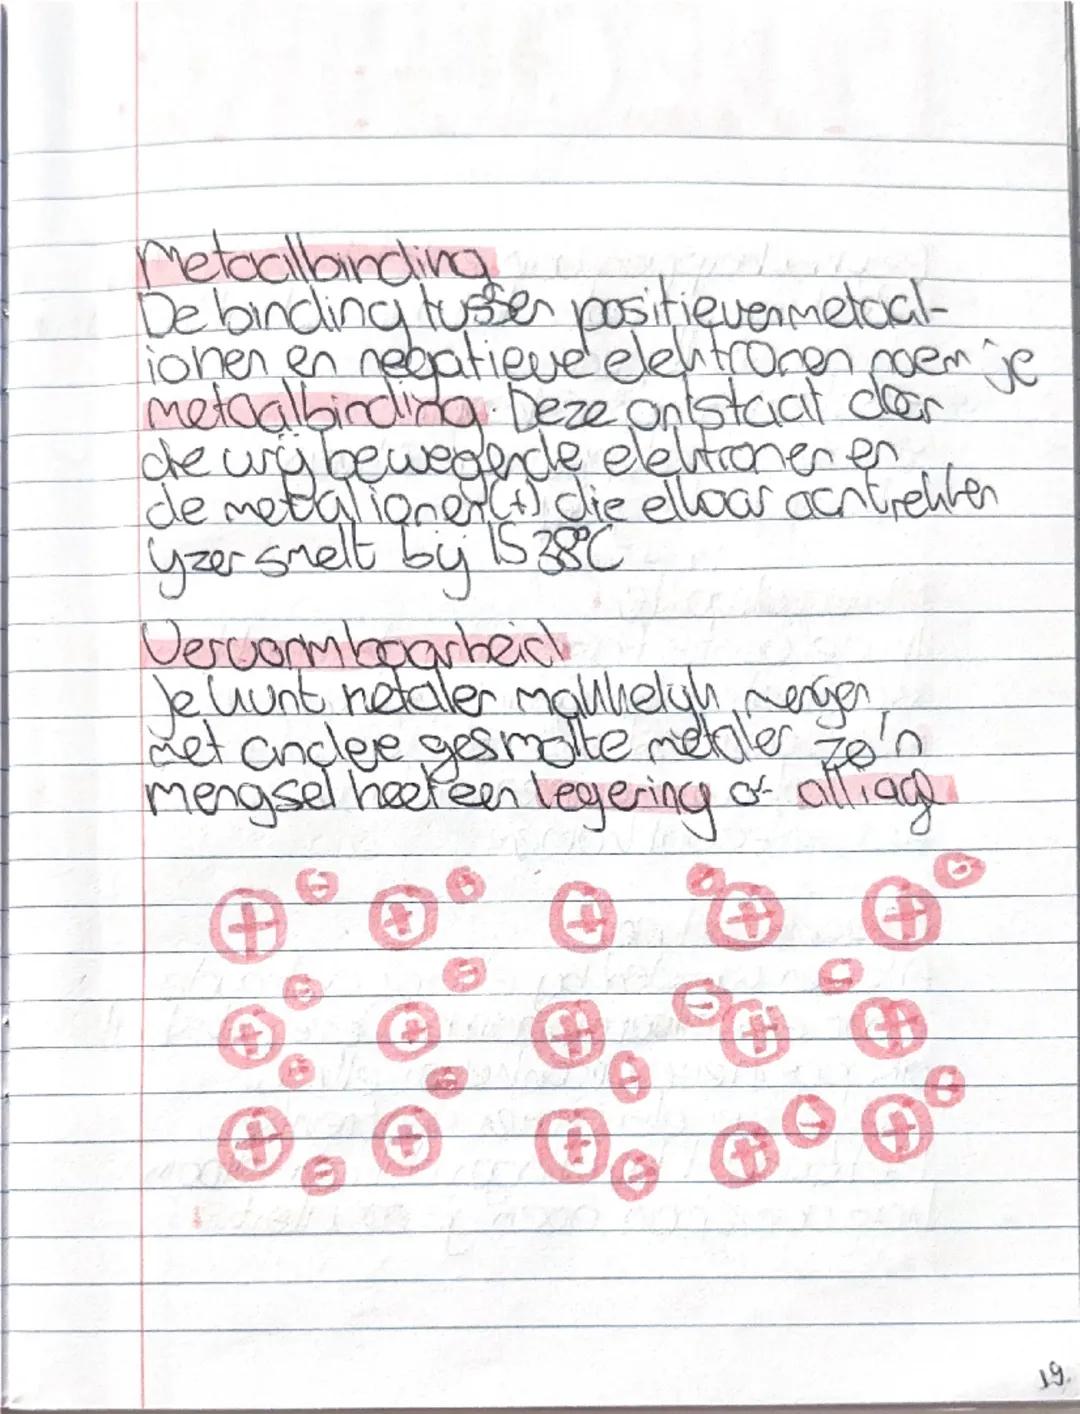 Metaalbinding
De binding tussen positieven metaal-
ionen en negatieve elektronen noem je
metaalbinding. Deze ontstaat door
de vrij bewegende elektronen en
de metaalionen(+) die elkaar aantrekken
yzer smelt bij 1538°C
Vervormbaarheid
Je kunt metalen makkelijk mengen
met andere gesmolte metalen zo'n
mengsel heet een legering of alliage
19.